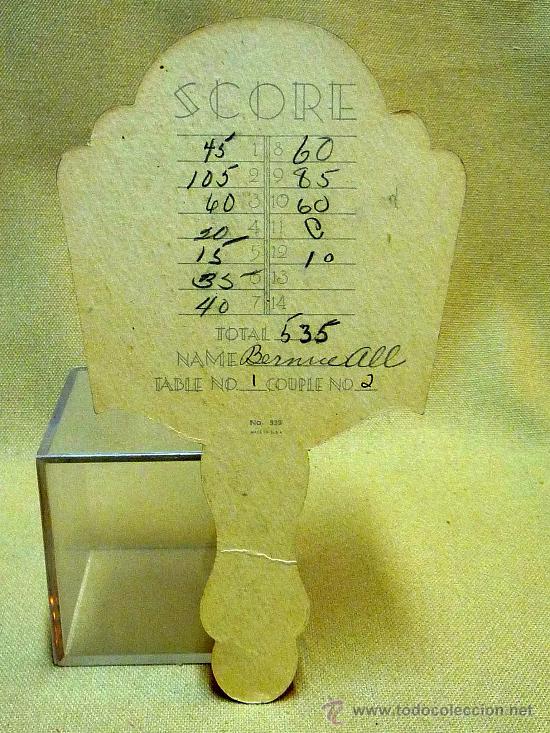 SCORE
45 1 8 60
105 2 9 85
60 3 10 60
20 4 11 C
15 5 12 10
35 6 13
40 7 14
TOTAL 535
NAME Bernice All
TABLE NO. 1 COUPLE NO. 2
No. 939
MADE IN U.S.A.
www.todocoleccion.net